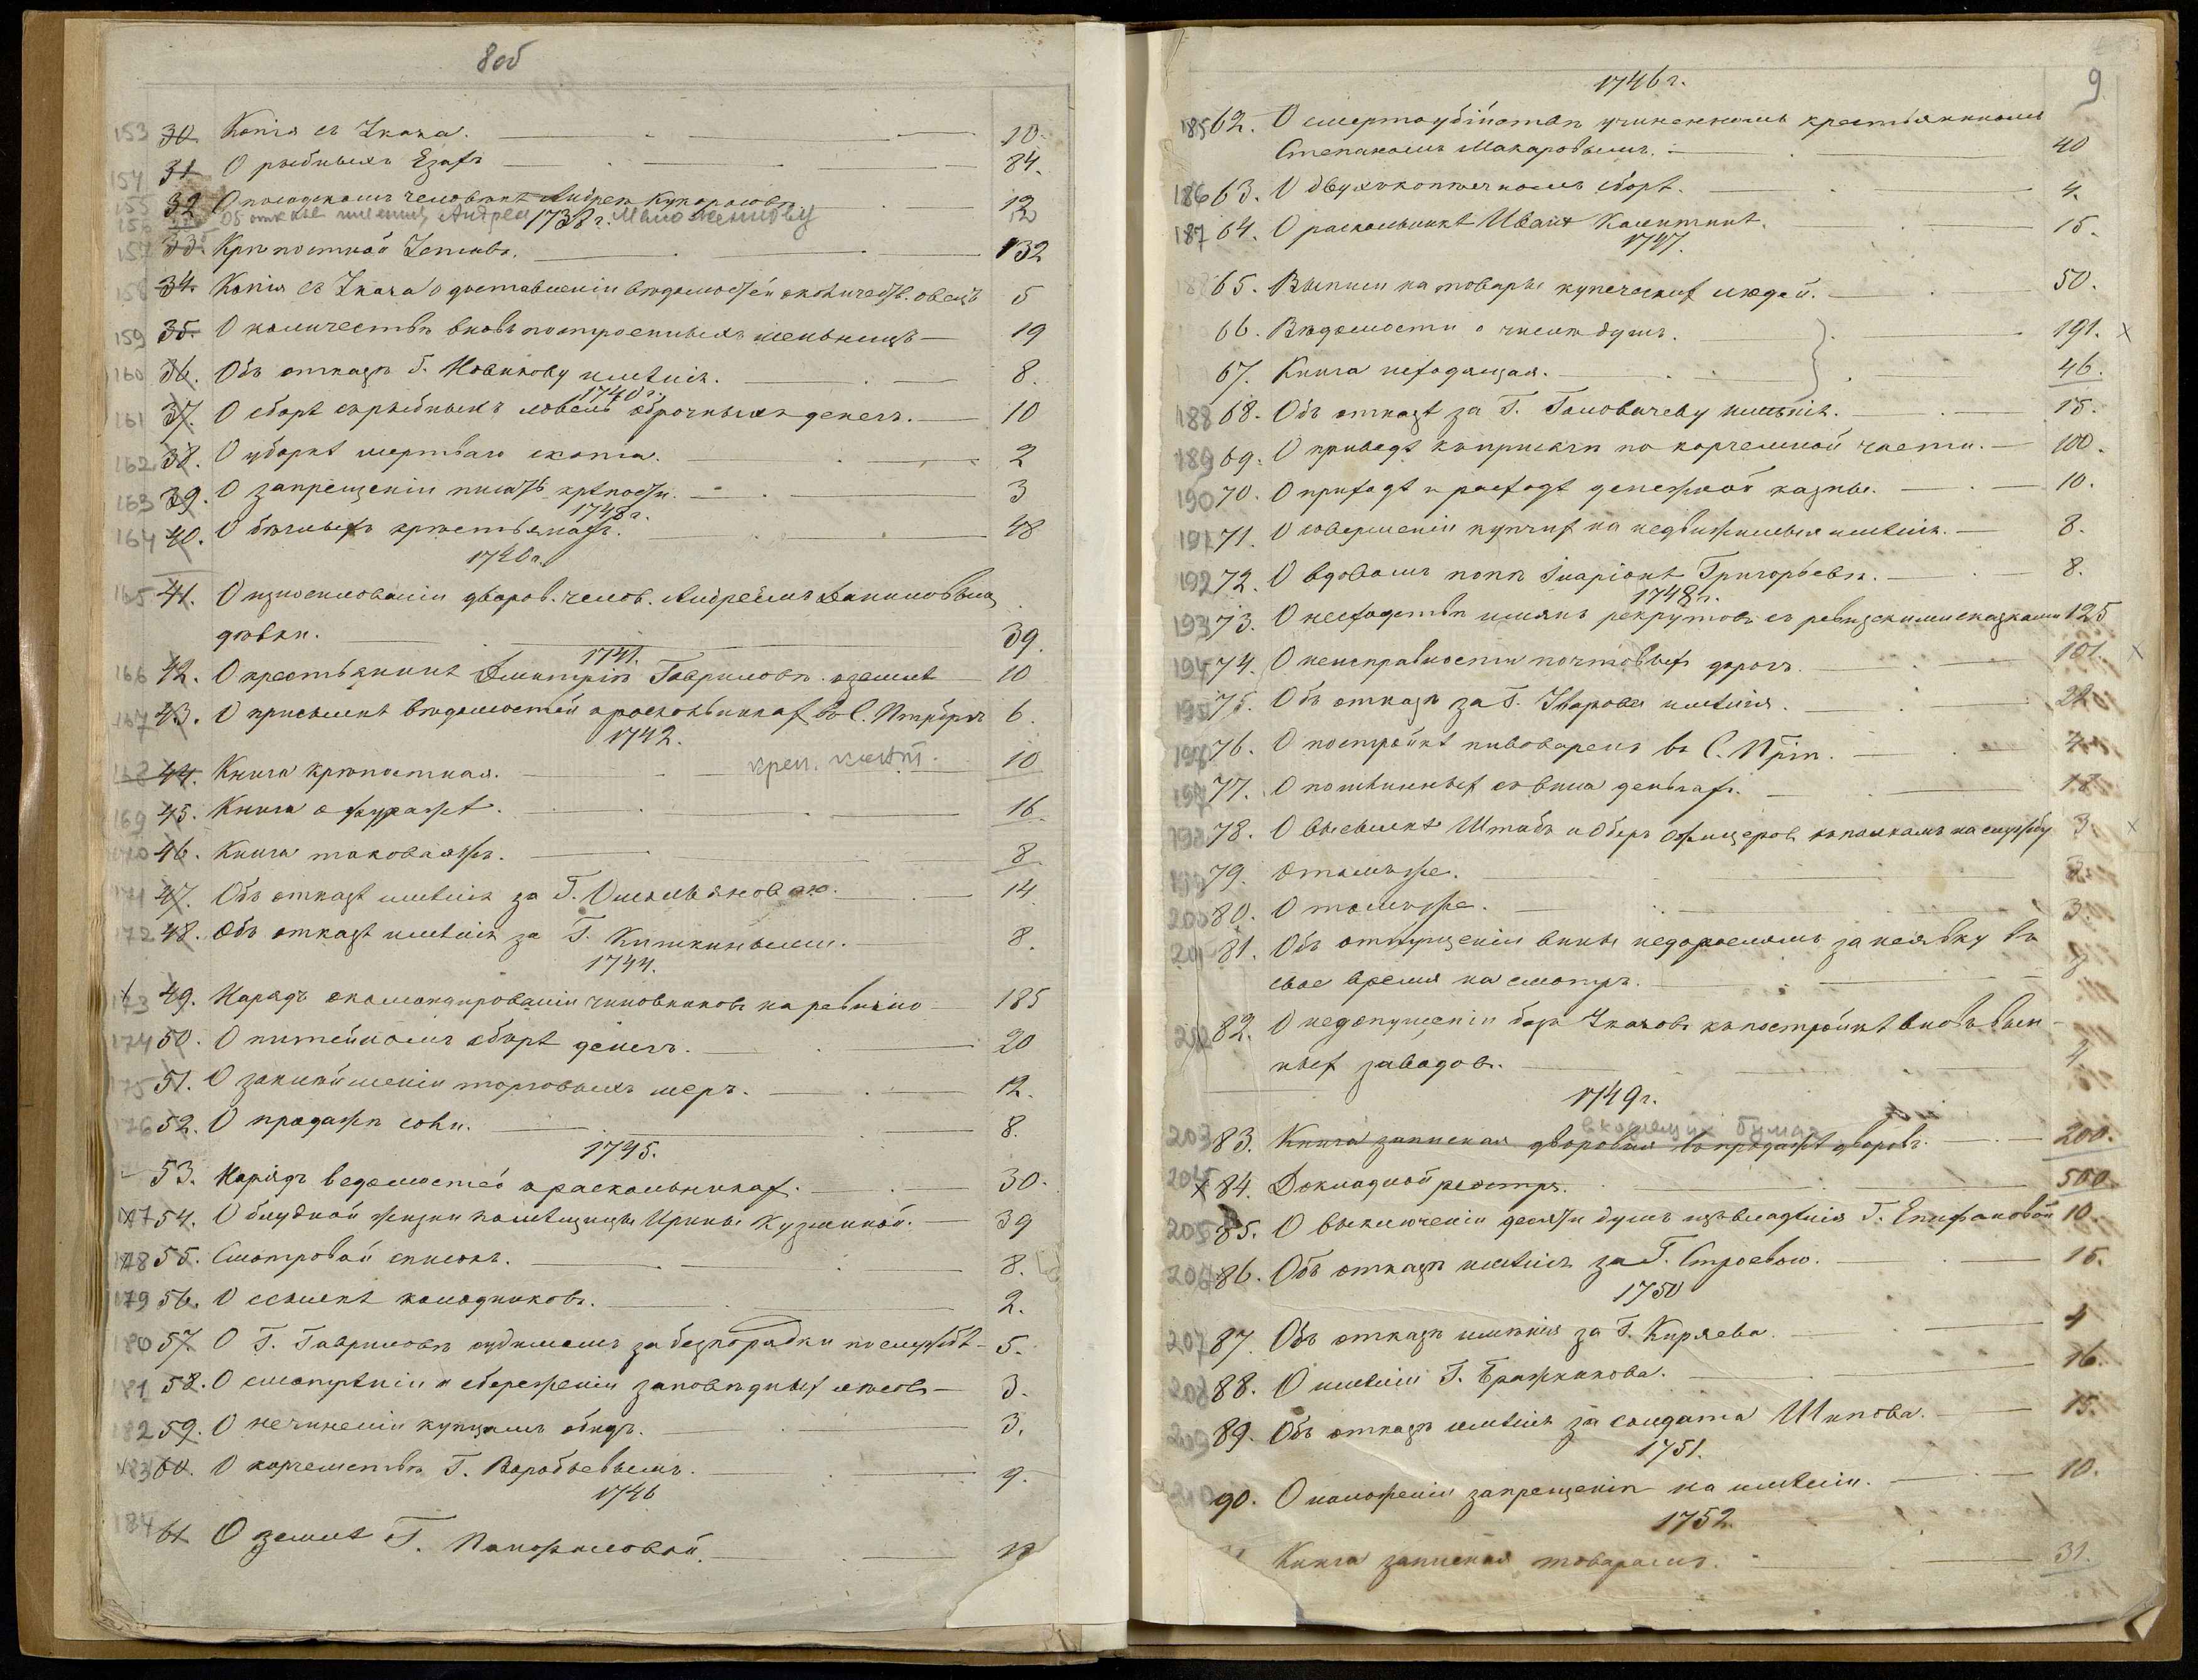 8 об
153 30. Копія съ Указа. 10.
154 31 О рыбныхъ Езахъ 84.
155 32 О посадскомъ человѣкѣ Андреѣ 12
156 Объ отказѣ имѣнія Андрею
1738 г.
157 33. Крѣпостной 132
158 34. Копія съ Указа о доставленіи вѣдомостей о количеств. овецъ 5
159 35. О количествѣ вновь построенныхъ мельницъ 19
160 36. Объ отказѣ Г. Новикову имѣнія. 8.
1740 г.
161 37. О сборѣ съ рыбныхъ ловель оброчныхъ денегъ. 10
162 38. О уборкѣ мертваго скота. 2
163 39. О запрещеніи писать крѣпости. 3
1748 г.
164 40. О бѣглыхъ крестьянахъ. 48
1740 г.
165 41. О изнасилованіи дворов. челов. Андреемъ Даниловымъ
дѣвки. 39.
1741.
166 42. О крестьянинѣ Дмитріѣ Гавриловѣ 10
167 43. О присылкѣ вѣдомостей о раскольникахъ въ С. Петрбргъ 6.
1742.
168 44. Книга крѣпостная. 10
169 45. Книга о фуражѣ. 16.
170 46. Книга таковаяжъ. 8.
171 47. Объ отказѣ имѣнія за Г. Омельяновою. 14.
172 48. Объ отказѣ имѣнія за Г. Кишкинымъ. 8.
1744.
173 49. Нарядъ о командированіи чиновниковъ на ревизію 185
174 50. О питейномъ сборѣ денегъ. 20
175 51. О заклеймленіи торговыхъ меръ. 12.
176 52. О продажѣ соли. 8.
1745.
53. Нарядъ ведомостей о раскольникахъ. 30.
177 54. О блудной жизни помѣщицы Ирины Кузминой. 39
178 55. Смотровой списокъ. 8.
179 56. О ссылкѣ колодниковъ. 2.
180 57 О Г. Гавриловѣ судимомъ за безпорядки по службѣ 5.
181 58. О смотрѣніи и сбереженіи заповѣдныхъ лѣсовъ 3.
182 59. О нечиненіи купцамъ обидъ. 3.
183 60. О корчемствѣ Г. Воробьевымъ. 9.
1746
184 61 О землѣ Г. Панфиловой.
9
1746 г.
185 62. О смертоубійствѣ учиненномъ крестьяниномъ
Степаномъ Макаровымъ. 40
186 63. О двухъкопѣечномъ сборѣ. 4.
187 64. О раскольникѣ Иванѣ 15.
1747.
188 65. Выписи на товары купеческихъ людей. 50.
66. Вѣдомости о числѣ душъ. 191. х
67. Книга исходящая. 46.
188 68. Объ отказѣ за Г. Головачеву имѣнія. 15.
189 69. О приводѣ къ присягѣ по корчемной части. 100.
190 70. О приходѣ и расходѣ денежной казны. 10.
191 71. О совершеніи купчихъ на недвижимыя имѣнія. 8.
192 72. О вдовомъ попѣ Иларіонѣ Григорьевѣ. 8.
1748 г.
193 73. О несходствѣ имянъ рекрутовъ съ ревизскими сказками 125
194 74. О неисправности почтовыхъ дорогъ. 101. х
195 75. Объ отказѣ за Г. Уварова имѣнія. 22
196 76. О постройкѣ пивоварень въ С.
197 77. О пошлинныхъ съ вина деньгахъ. 18
198 78. О высылкѣ Штабъ и Оберъ офицеровъ къ полкамъ на службу 3. х
199 79. О томъже. 3.
200 80. О томъже. 3.
201 81. Объ отпущеніи вины недорослямъ за неявку въ
свое время на смотръ.
202 82. О недопущеніи безъ Указовъ къ постройкѣ вновь
ныхъ заводовъ. 4
1749 г.
входящих бумаг
203 83. Книга записная дворовая о продажѣ дворовъ. 200.
204 х 84. Докладной реэстръ. 500.
205 85. О выключеніи десяти душъ изъ владѣнія Г. Епифановой 10.
206 86. Объ отказѣ имѣнія за Г. Строевою. 15.
1750
207 87. Объ отказѣ имѣнія за Г. Киряева. 4
208 88. О имѣніи Г. Бражникова. 16.
209 89. Объ отказѣ имѣнія за солдата Шипова. 15.
1751.
210 90. О наложеніи запрещенія на имѣніи. 10.
1752.
Книга записная товарамъ. 31.